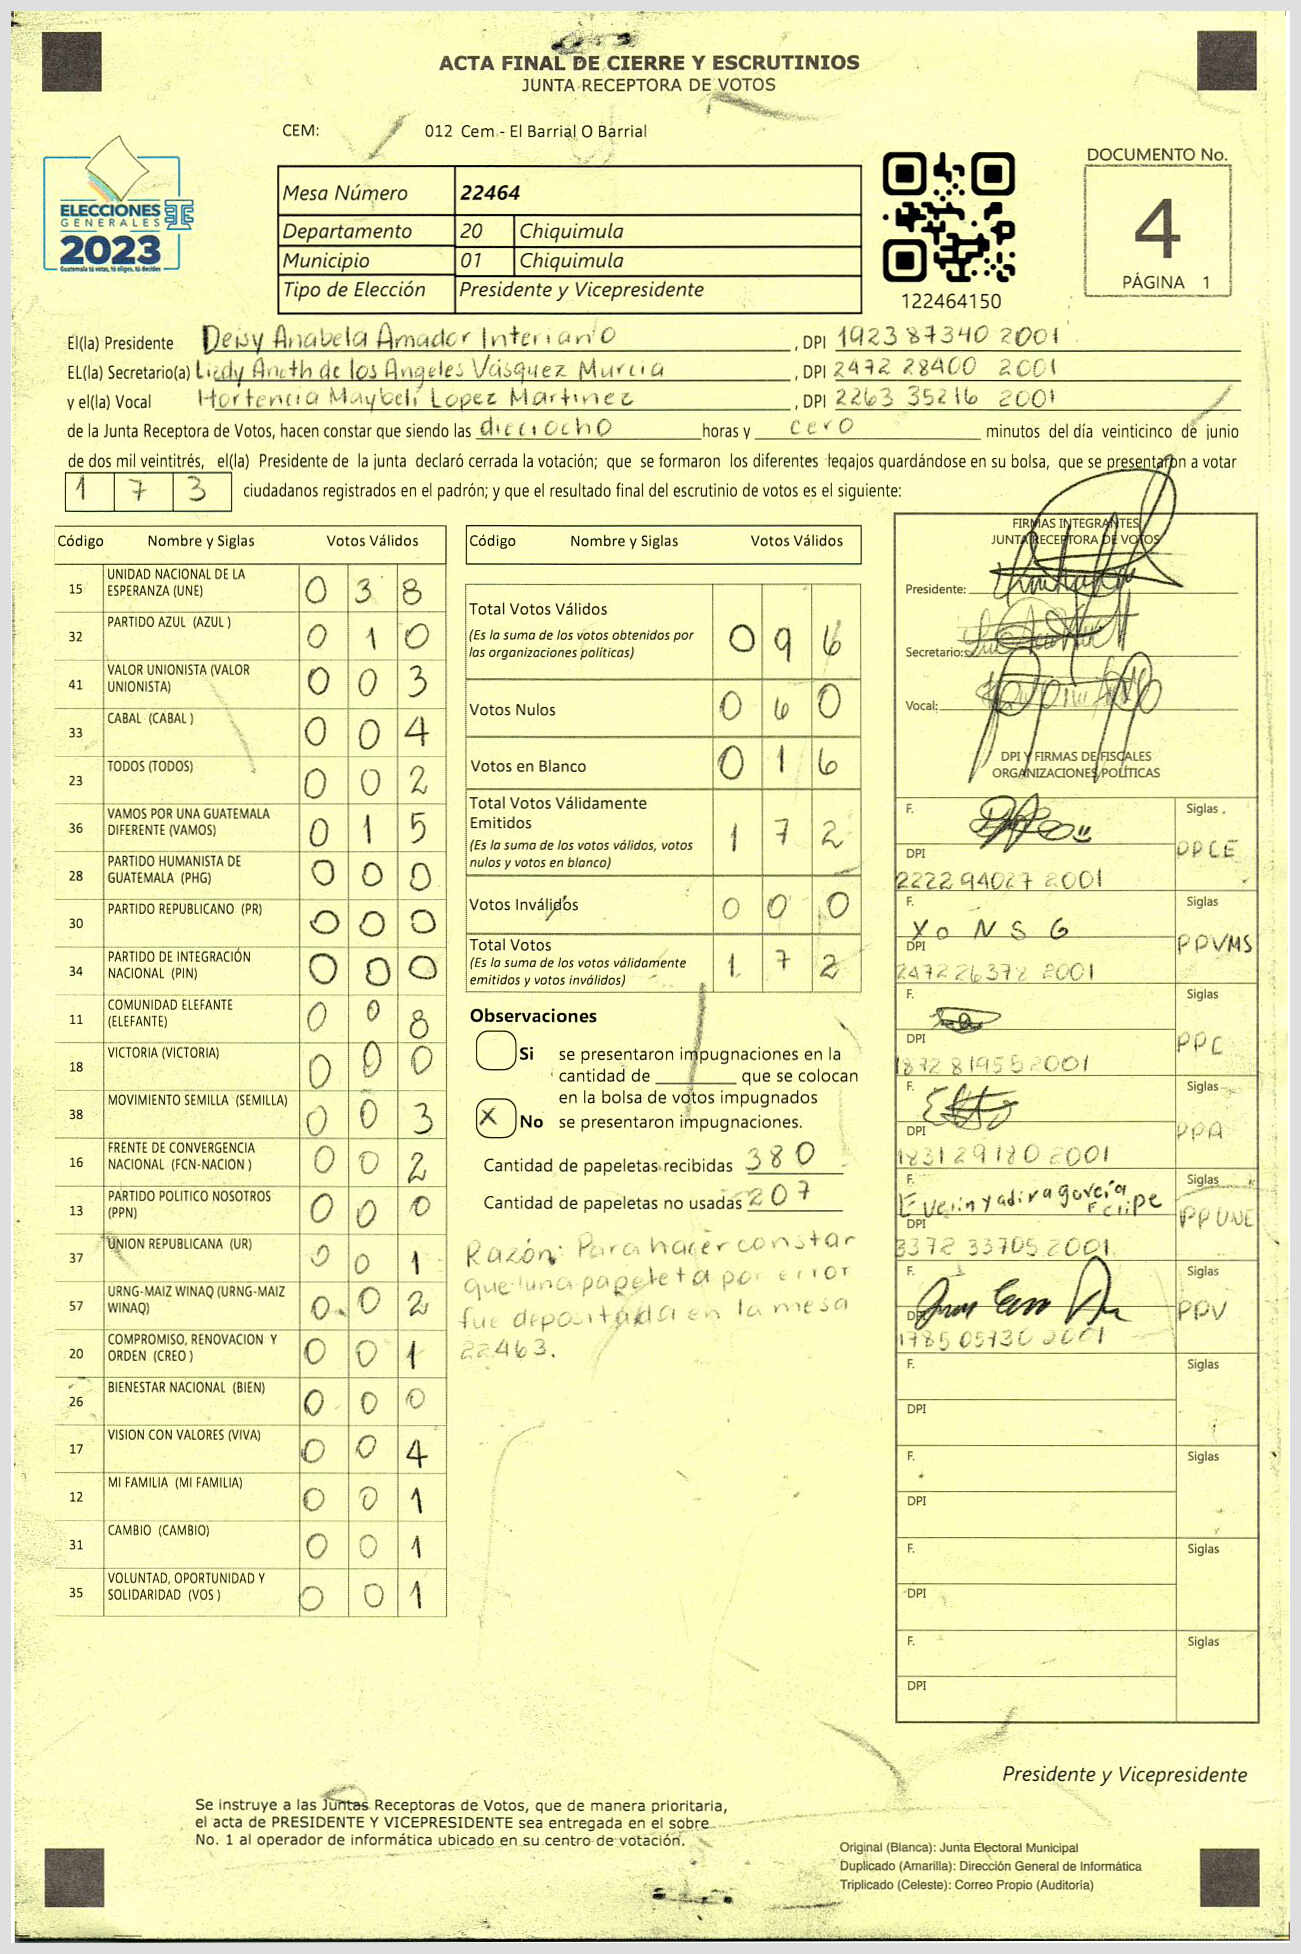 ACTA FINAL DE CIERRE Y ESCRUTINIOS
JUNTA RECEPTORA DE VOTOS
CEM: 012 Cem - El Barrial O Barrial
ELECCIONES
GENERALES
2023
Guatemala tú votas, tú eliges, tú decides
Mesa Número 22464
Departamento 20 Chiquimula
Municipio 01 Chiquimula
Tipo de Elección Presidente y Vicepresidente
122464150
DOCUMENTO No.
4
PÁGINA 1
El(la) Presidente Deisy Anabela Amador Interiano , DPI 192387340 2001
EL(la) Secretario(a) Lizdy Aneth de los Angeles Vásquez Murcia , DPI 2472 28400 2001
y el(la) Vocal Hortencia Maybelí Lopez Martinez , DPI 2263 35216 2001
de la Junta Receptora de Votos, hacen constar que siendo las dieciocho horas y cero minutos del día veinticinco de junio
de dos mil veintitrés, el(la) Presidente de la junta declaró cerrada la votación; que se formaron los diferentes legajos guardándose en su bolsa, que se presentaron a votar
1 7 3 ciudadanos registrados en el padrón; y que el resultado final del escrutinio de votos es el siguiente:
Código Nombre y Siglas Votos Válidos
15 UNIDAD NACIONAL DE LA ESPERANZA (UNE) 0 3 8
32 PARTIDO AZUL (AZUL ) 0 1 0
41 VALOR UNIONISTA (VALOR UNIONISTA) 0 0 3
33 CABAL (CABAL ) 0 0 4
23 TODOS (TODOS) 0 0 2
36 VAMOS POR UNA GUATEMALA DIFERENTE (VAMOS) 0 1 5
28 PARTIDO HUMANISTA DE GUATEMALA (PHG) 0 0 0
30 PARTIDO REPUBLICANO (PR) 0 0 0
34 PARTIDO DE INTEGRACIÓN NACIONAL (PIN) 0 0 0
11 COMUNIDAD ELEFANTE (ELEFANTE) 0 0 8
18 VICTORIA (VICTORIA) 0 0 0
38 MOVIMIENTO SEMILLA (SEMILLA) 0 0 3
16 FRENTE DE CONVERGENCIA NACIONAL (FCN-NACION ) 0 0 2
13 PARTIDO POLITICO NOSOTROS (PPN) 0 0 0
37 UNION REPUBLICANA (UR) 0 0 1
57 URNG-MAIZ WINAQ (URNG-MAIZ WINAQ) 0 0 2
20 COMPROMISO, RENOVACION Y ORDEN (CREO ) 0 0 1
26 BIENESTAR NACIONAL (BIEN) 0 0 0
17 VISION CON VALORES (VIVA) 0 0 4
12 MI FAMILIA (MI FAMILIA) 0 0 1
31 CAMBIO (CAMBIO) 0 0 1
35 VOLUNTAD, OPORTUNIDAD Y SOLIDARIDAD (VOS ) 0 0 1
Código Nombre y Siglas Votos Válidos
Total Votos Válidos 0 9 6
(Es la suma de los votos obtenidos por
las organizaciones políticas)
Votos Nulos 0 6 0
Votos en Blanco 0 1 6
Total Votos Válidamente
Emitidos 1 7 2
(Es la suma de los votos válidos, votos
nulos y votos en blanco)
Votos Inválidos 0 0 0
Total Votos 1 7 2
(Es la suma de los votos válidamente
emitidos y votos inválidos)
Observaciones
Si se presentaron impugnaciones en la
cantidad de ________ que se colocan
en la bolsa de votos impugnados
X No se presentaron impugnaciones.
Cantidad de papeletas recibidas 380
Cantidad de papeletas no usadas 207
Razón: Para hacer constar
que una papeleta por error
fue depositada en la mesa
22463.
FIRMAS INTEGRANTES
JUNTA RECEPTORA DE VOTOS
Presidente:
Secretario:
Vocal:
DPI Y FIRMAS DE FISCALES
ORGANIZACIONES POLÍTICAS
F. Siglas
DPI PPCE
2222 94027 2001
F. Siglas
DPI PPVMS
2472 26372 2001
F. Siglas
DPI PPC
1872 81955 2001
F. Siglas
DPI PPA
1831 29180 2001
F. Evelin yadira garcía Felipe Siglas
DPI PPUNE
3372 33705 2001
F. Siglas
DPI PPV
1785 05730 2001
F. Siglas
DPI
F. Siglas
DPI
F. Siglas
DPI
F. Siglas
DPI
Presidente y Vicepresidente
Se instruye a las Juntas Receptoras de Votos, que de manera prioritaria,
el acta de PRESIDENTE Y VICEPRESIDENTE sea entregada en el sobre
No. 1 al operador de informática ubicado en su centro de votación.
Original (Blanca): Junta Electoral Municipal
Duplicado (Amarilla): Dirección General de Informática
Triplicado (Celeste): Correo Propio (Auditoría)